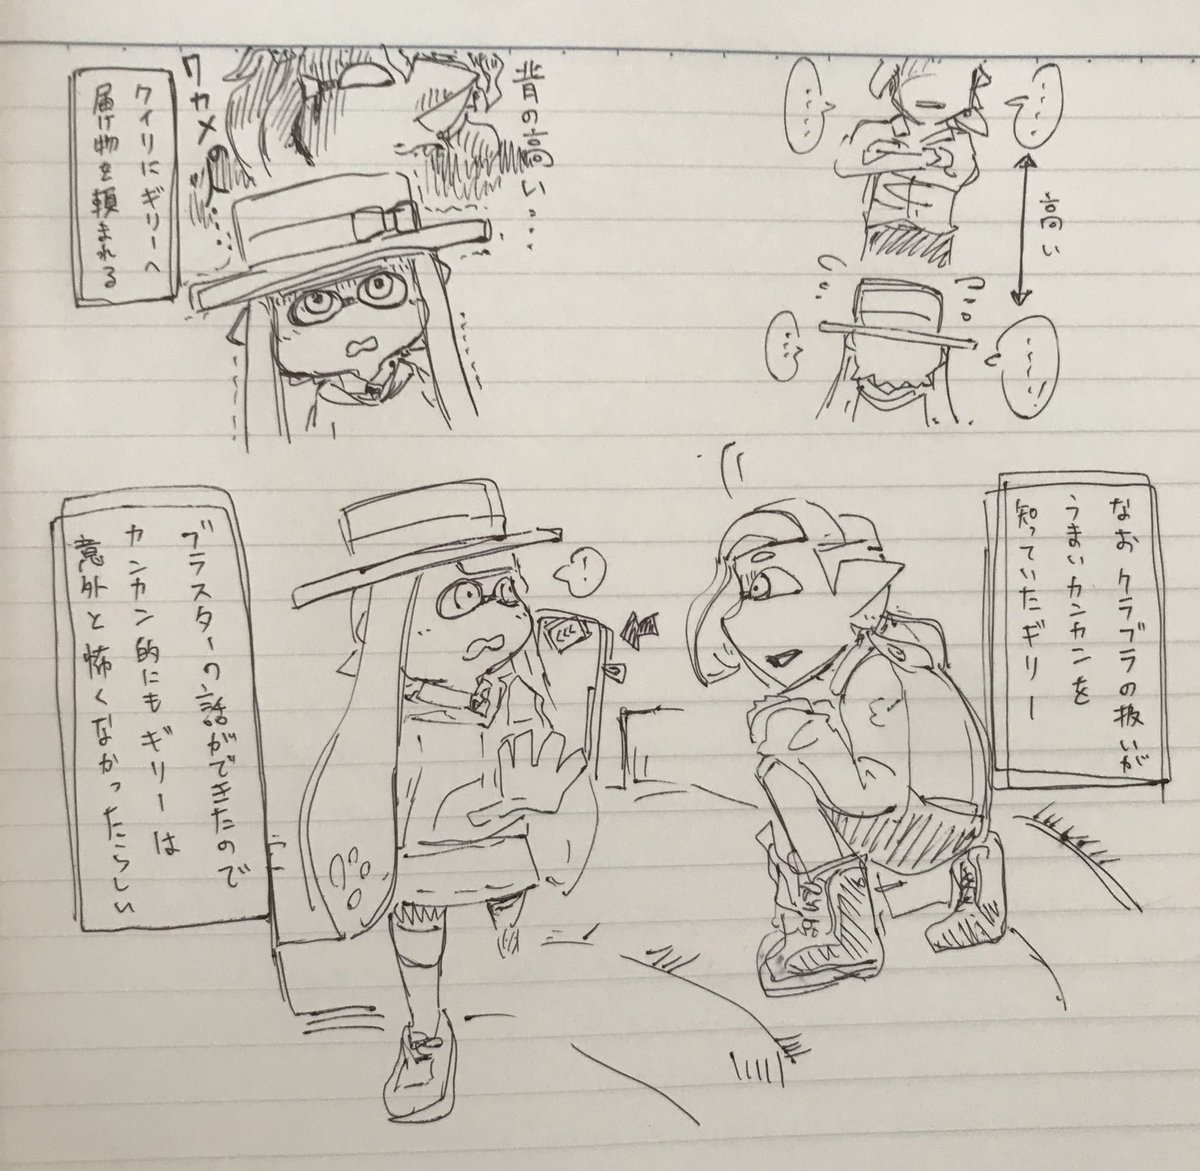 高い
背の高い…
ワカメ
クイリにギリーへ
届け物を頼まれる
なお クラブラの扱いが
うまいカンカンを
知っていたギリー
!
ブラスターの話ができたので
カンカン的にもギリーは
意外と怖くなかったらしい